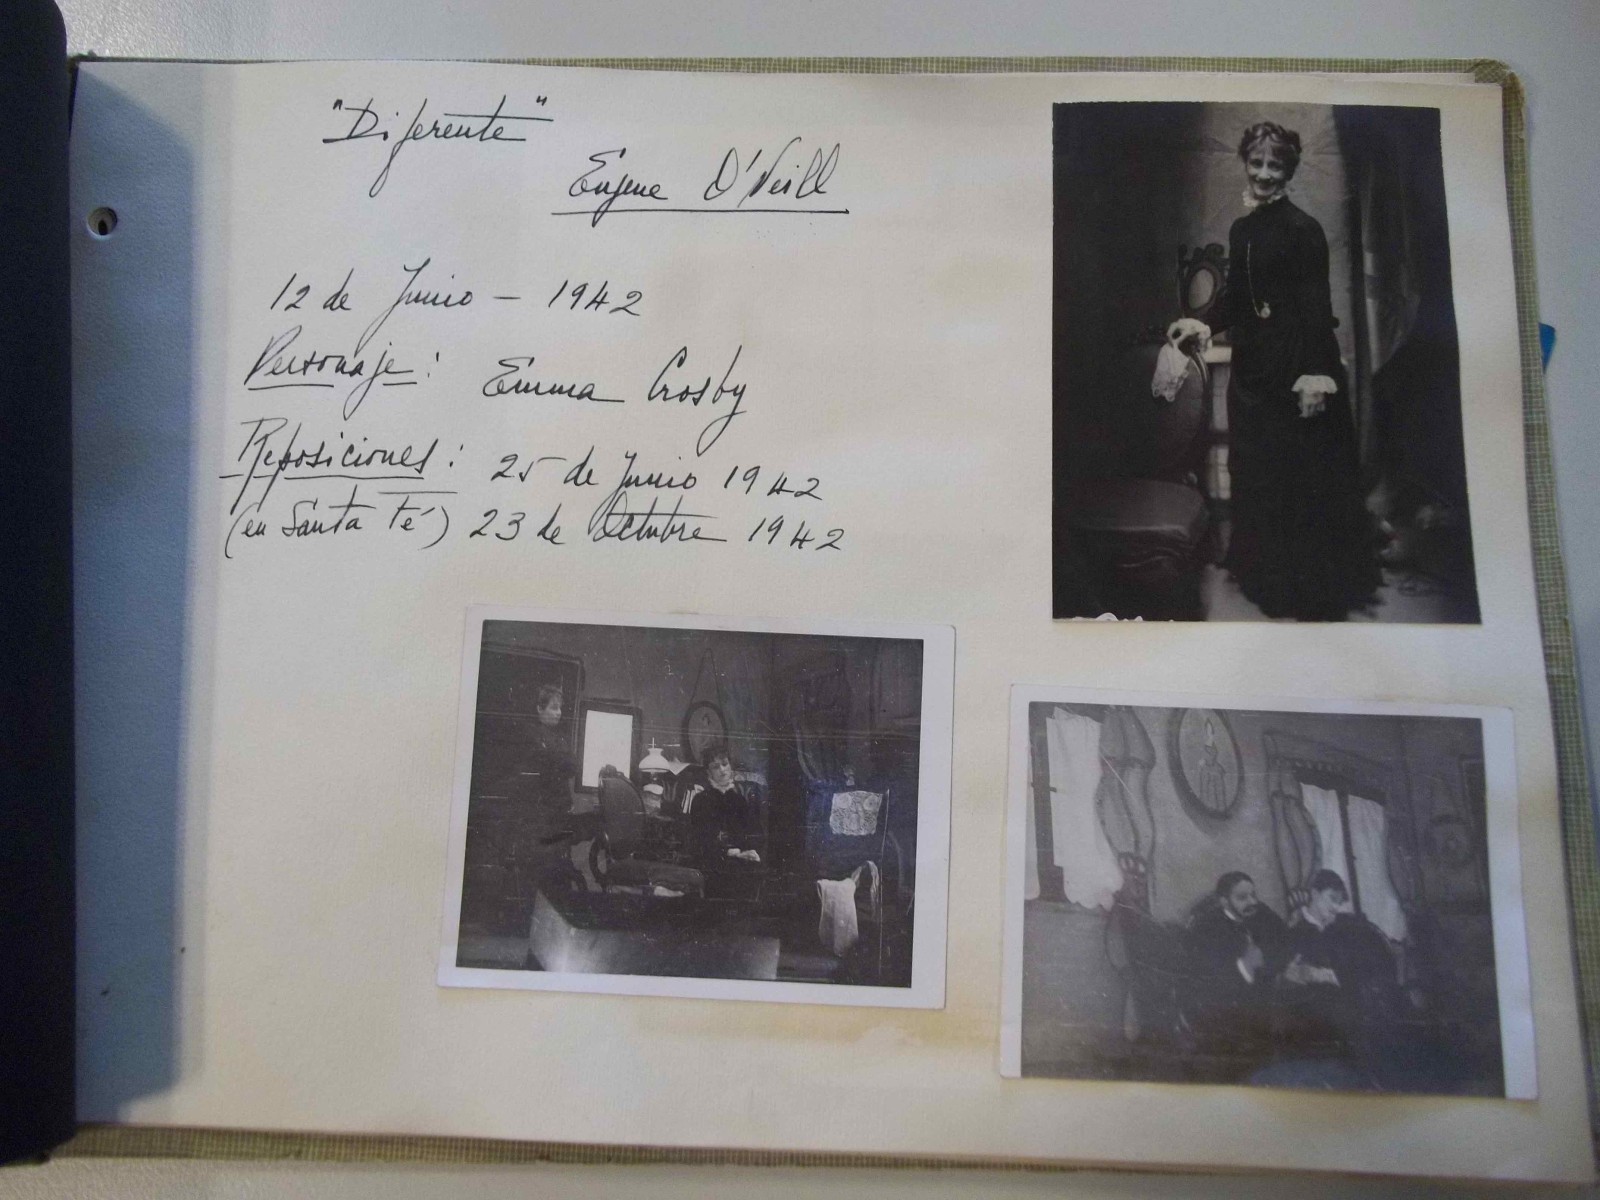 "Diferente"
Eugene O'Neill
12 de Junio - 1942
Personaje: Emma Crosby
Reposiciones: 25 de Junio 1942
(en Santa Fé) 23 de Octubre 1942